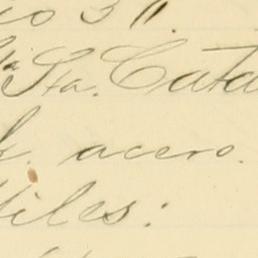 o 3".
Sta. Cata
acero.
iles: